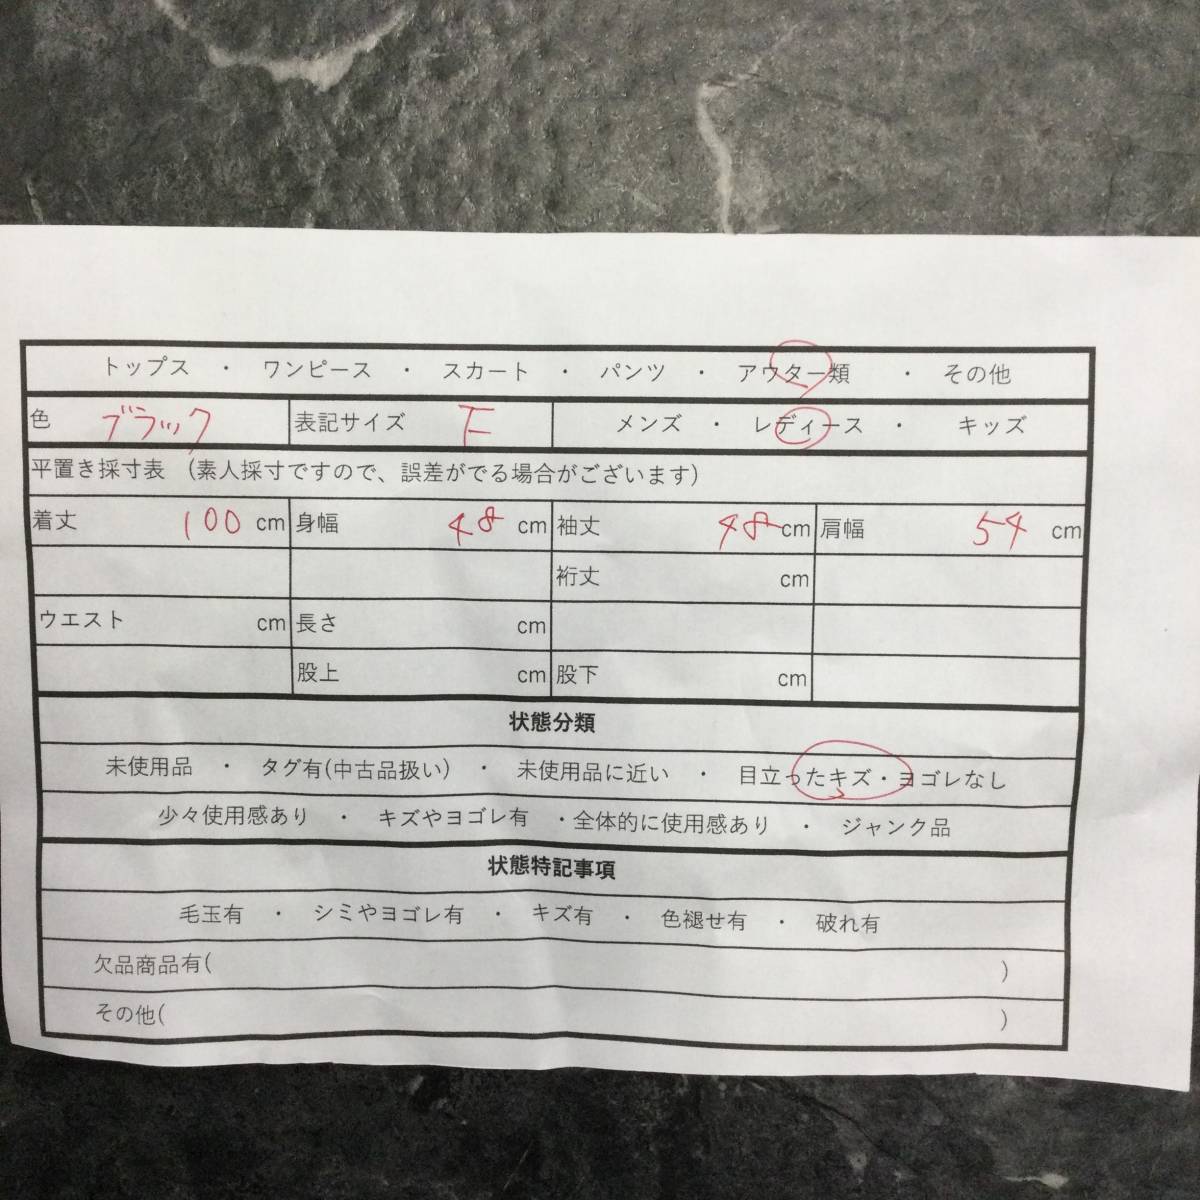 トップス ・ ワンピース ・ スカート ・ パンツ ・ アウター類 ・ その他
色 ブラック 表記サイズ F メンズ ・ レディース ・ キッズ
平置き採寸表 （素人採寸ですので、誤差がでる場合がございます）
着丈 100 cm 身幅 48 cm 袖丈 48 cm 肩幅 54 cm
裄丈 cm
ウエスト cm 長さ cm
股上 cm 股下 cm
状態分類
未使用品 ・ タグ有(中古品扱い) ・ 未使用品に近い ・ 目立ったキズ・ヨゴレなし
少々使用感あり ・ キズやヨゴレ有 ・全体的に使用感あり ・ ジャンク品
状態特記事項
毛玉有 ・ シミやヨゴレ有 ・ キズ有 ・ 色褪せ有 ・ 破れ有
欠品商品有( )
その他( )